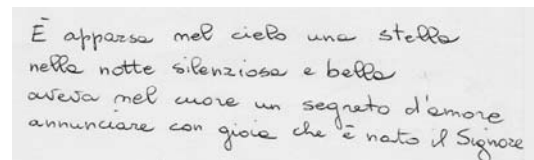 È apparsa nel cielo una stella
nella notte silenziosa e bella
aveva nel cuore un segreto d'amore
annunciare con gioia che è nato il Signore